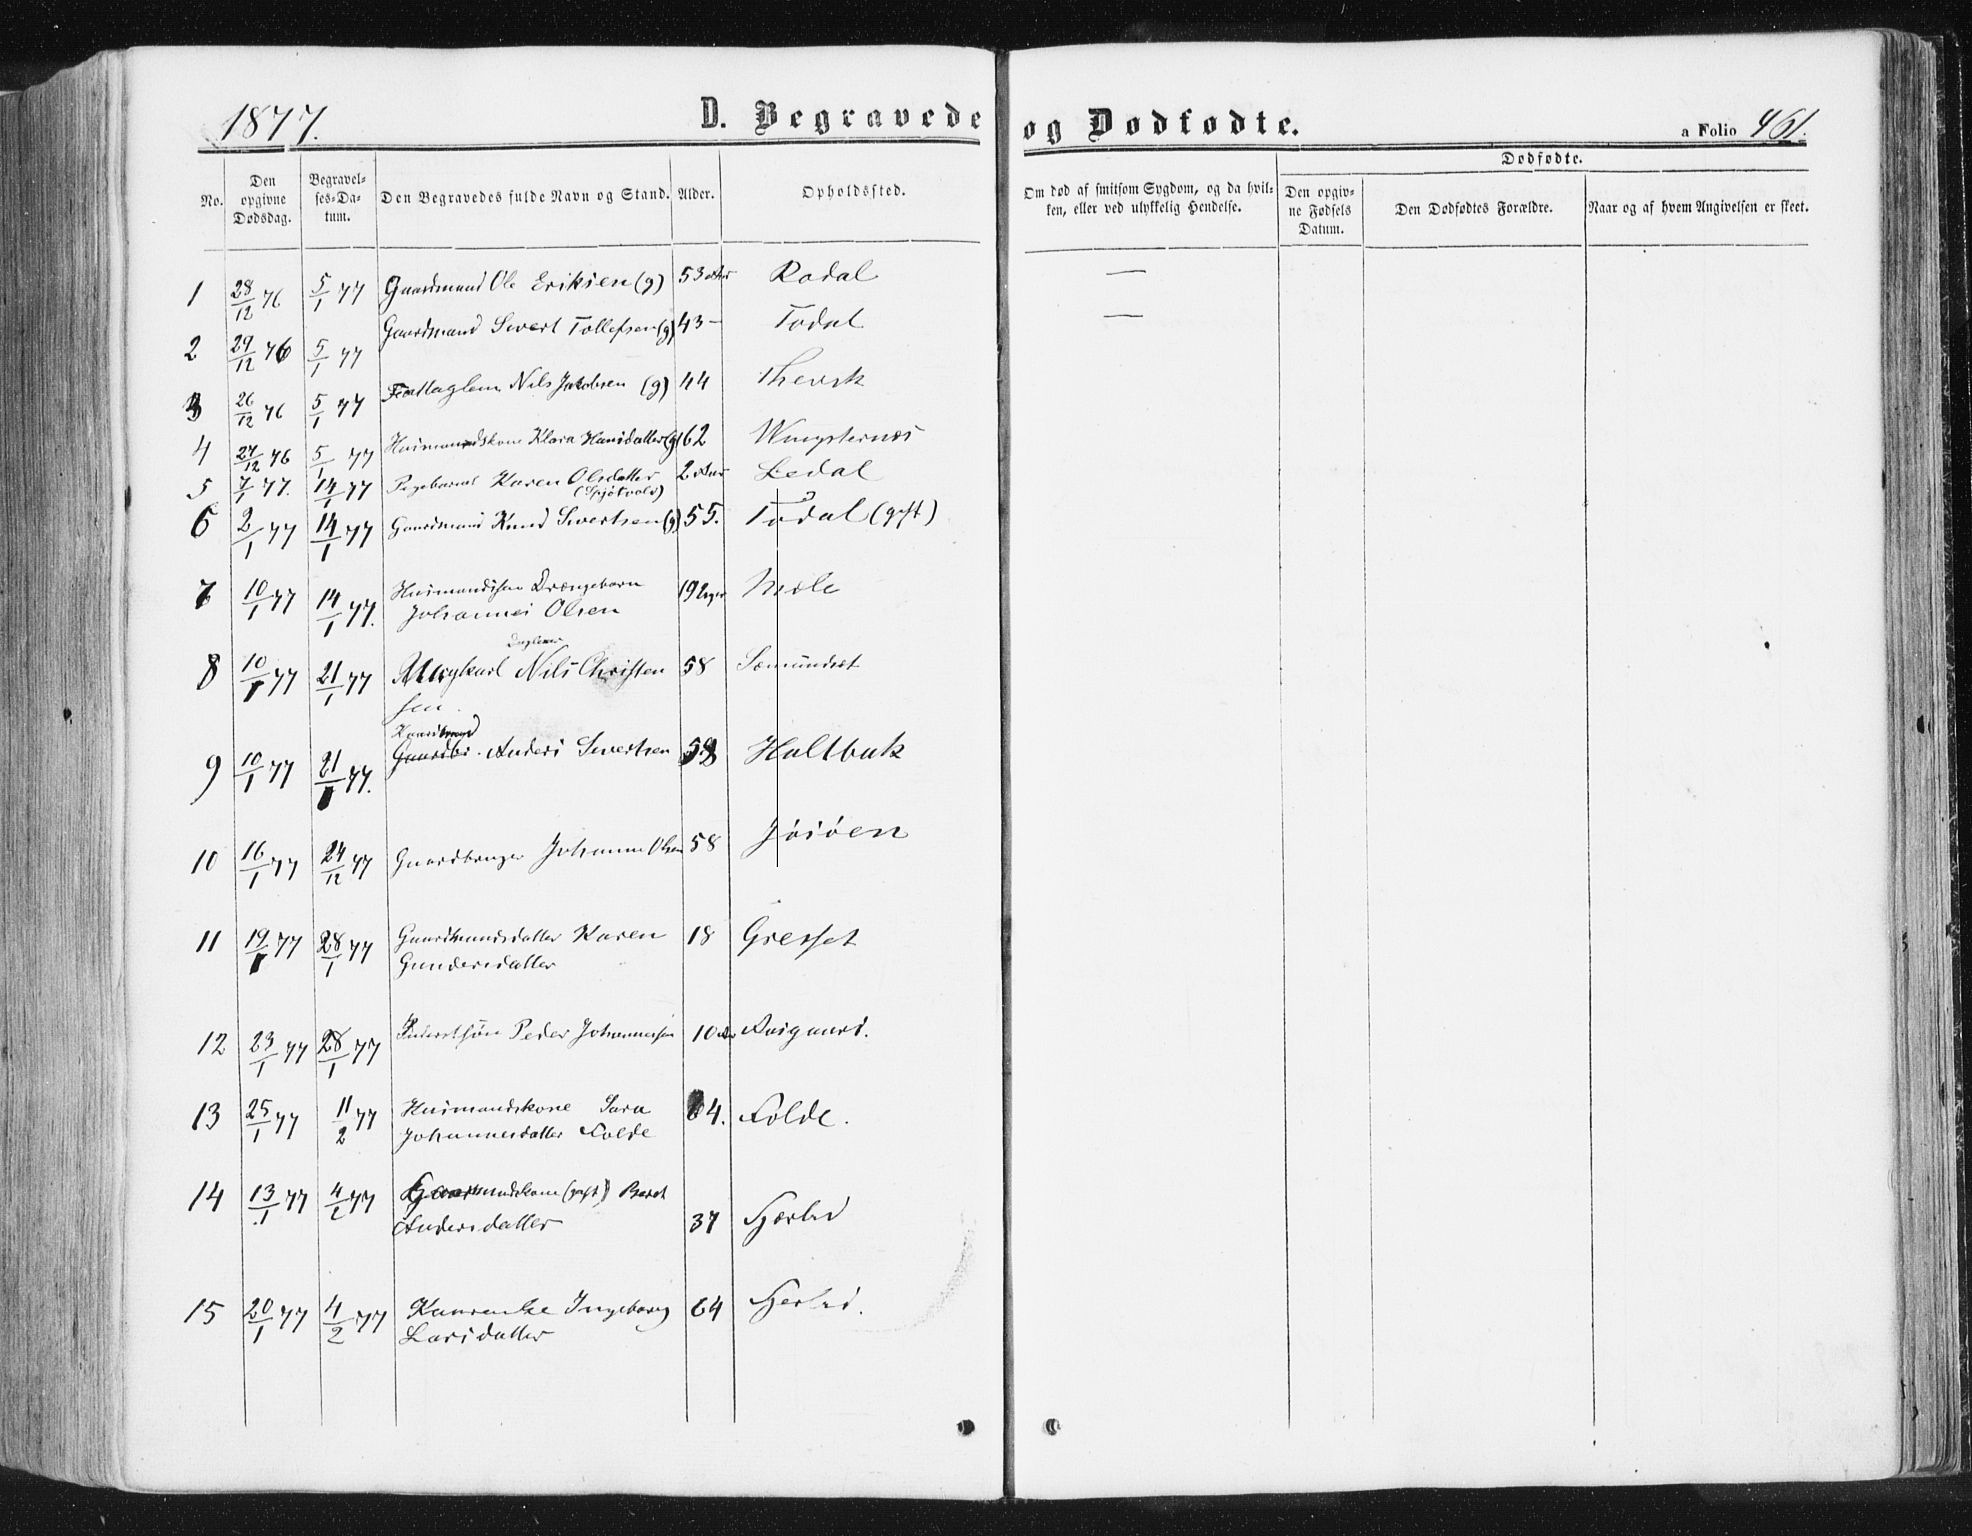 1877. D. Begravede og Dødfødte. a Folio 461.
No. Den opgivne Dødsdag. Begravelses-Datum. Den Begravedes fulde Navn og Stand. Alder. Opholdssted. Om død af smitsom Sygdom, og da hvilken, eller ved ulykkelig Hendelse. Dødfødte. Den opgivne Fødsels Datum. Den Dødfødtes Forældre. Naar og af hvem Angivelsen er skeet.
1 28/12 76 5/1 77 Gaardmand Ole Eriksen (g) 53 Rodal —
2 29/12 76 5/1 77 Gaardmand Sivert Tollefsen (g) 43 — Todal —
3 26/12 76 5/1 77 Nils Jakobsen (g) 44
4 27/12 76 5/1 77 Huusmandskone Klara Hansdatter (g) 62
5 7/1 77. 14/1 77 Pigebarnet Karen Olsdatter 2 Ledal
6 2/1 77 14/1 77 Gaardmand Knud Sivertsen (g) 55. Todal (gift)
7 10/1 77 14/1 77. Drengebarn
Johannes Olsen 19 Uger Mele
8 10/1 77 21/1 77 Nils Christen
sen. 58 Sæmundset
9 10/1 77 21/1 77. Anders Sivertsen 58 Holtbak
10 16/1 77 24/12 77 Gaardbruger Johannes Olsen 58 Jøsøen
11 19/1 77 28/1 77 Gaardmandsdatter Karen
Gundersdatter 18 Gresset
12 23/1 77 28/1 77 Peder Johannessen 10
13 25/1 77 11/2 77 Huusmandskone Sara
Johannesdatter Folde 4. Folde.
14 13/1 77 4/2 77 (gift) Beret
Andersdatter 37
15 20/1 77 4/2 77 Ingeborg
Larsdatter 64